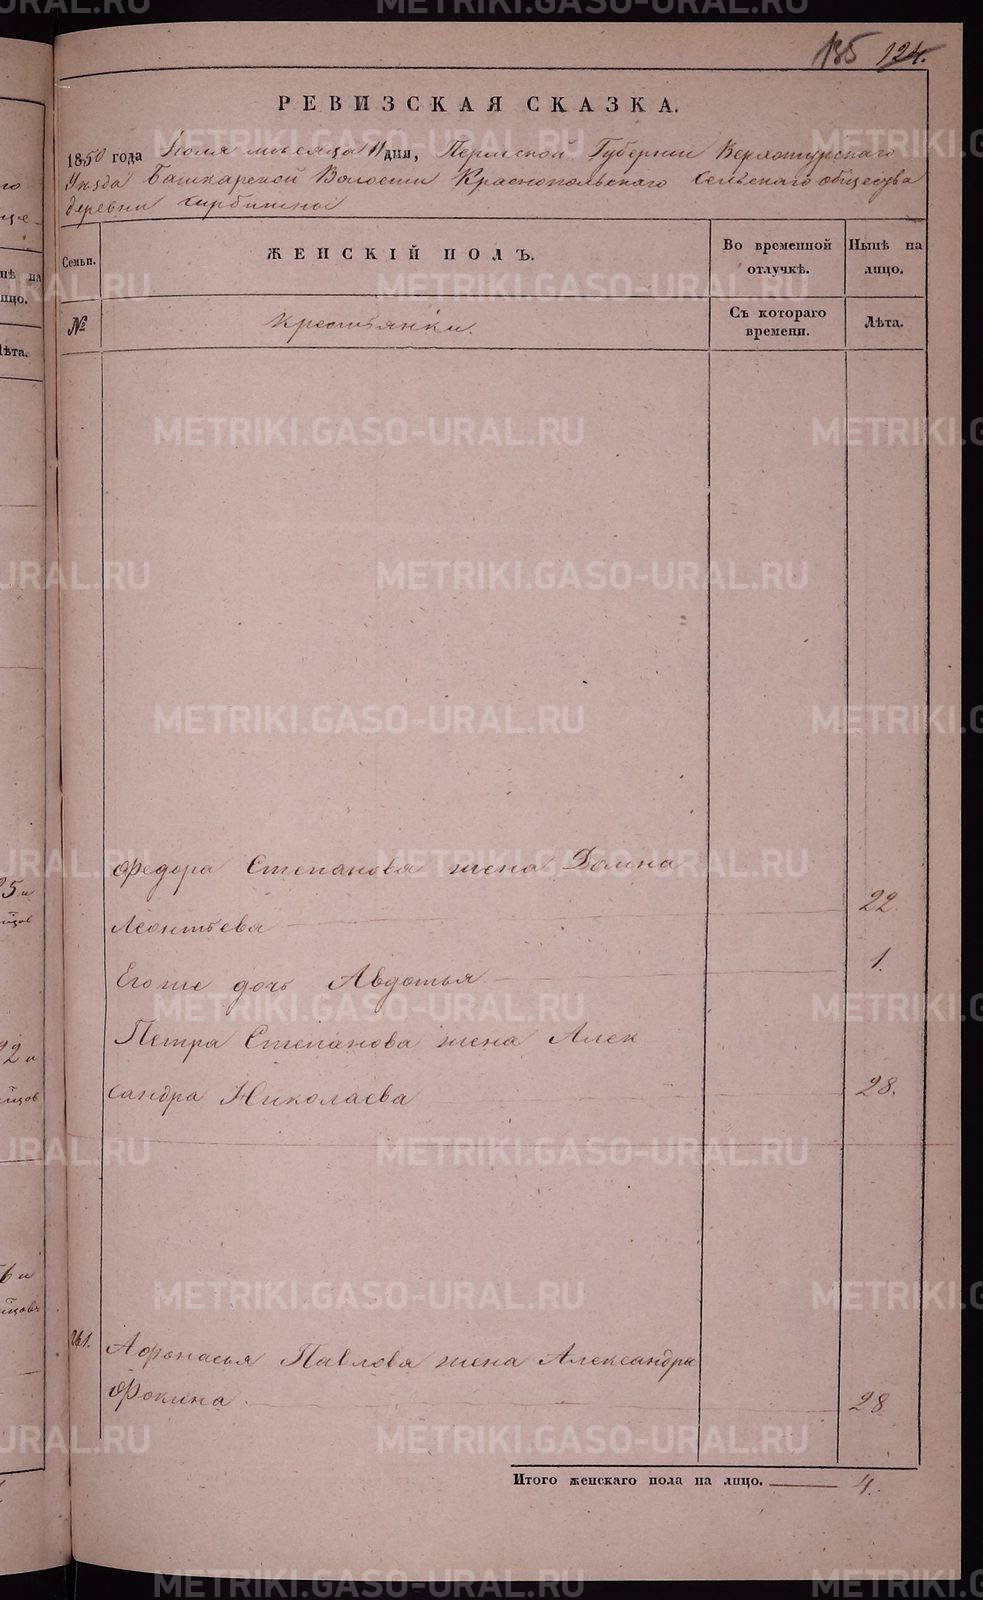 135 124.
РЕВИЗСКАЯ СКАЗКА.
1850 года Июля месяца 11 дня, Пермской Губернии Верхотурскаго
Уезда Башкарской Волости Краснопольскаго Сельскаго общества
деревни
Семьи.
ЖЕНСКІЙ ПОЛЪ.
Во временной отлучкѣ.
Нынѣ на лицо.
№
Крестьянки.
Съ котораго времени.
Лѣта.
Федора Степанова жена Домна
Леонтьева 22.
Егоже дочь Авдотья 1.
Петра Степанова жена Алек
сандра Николаева 28.
261. Афонасья Павлова жена Александра
Фокина 28
Итого женскаго пола на лицо. 4.
METRIKI.GASO-URAL.RU